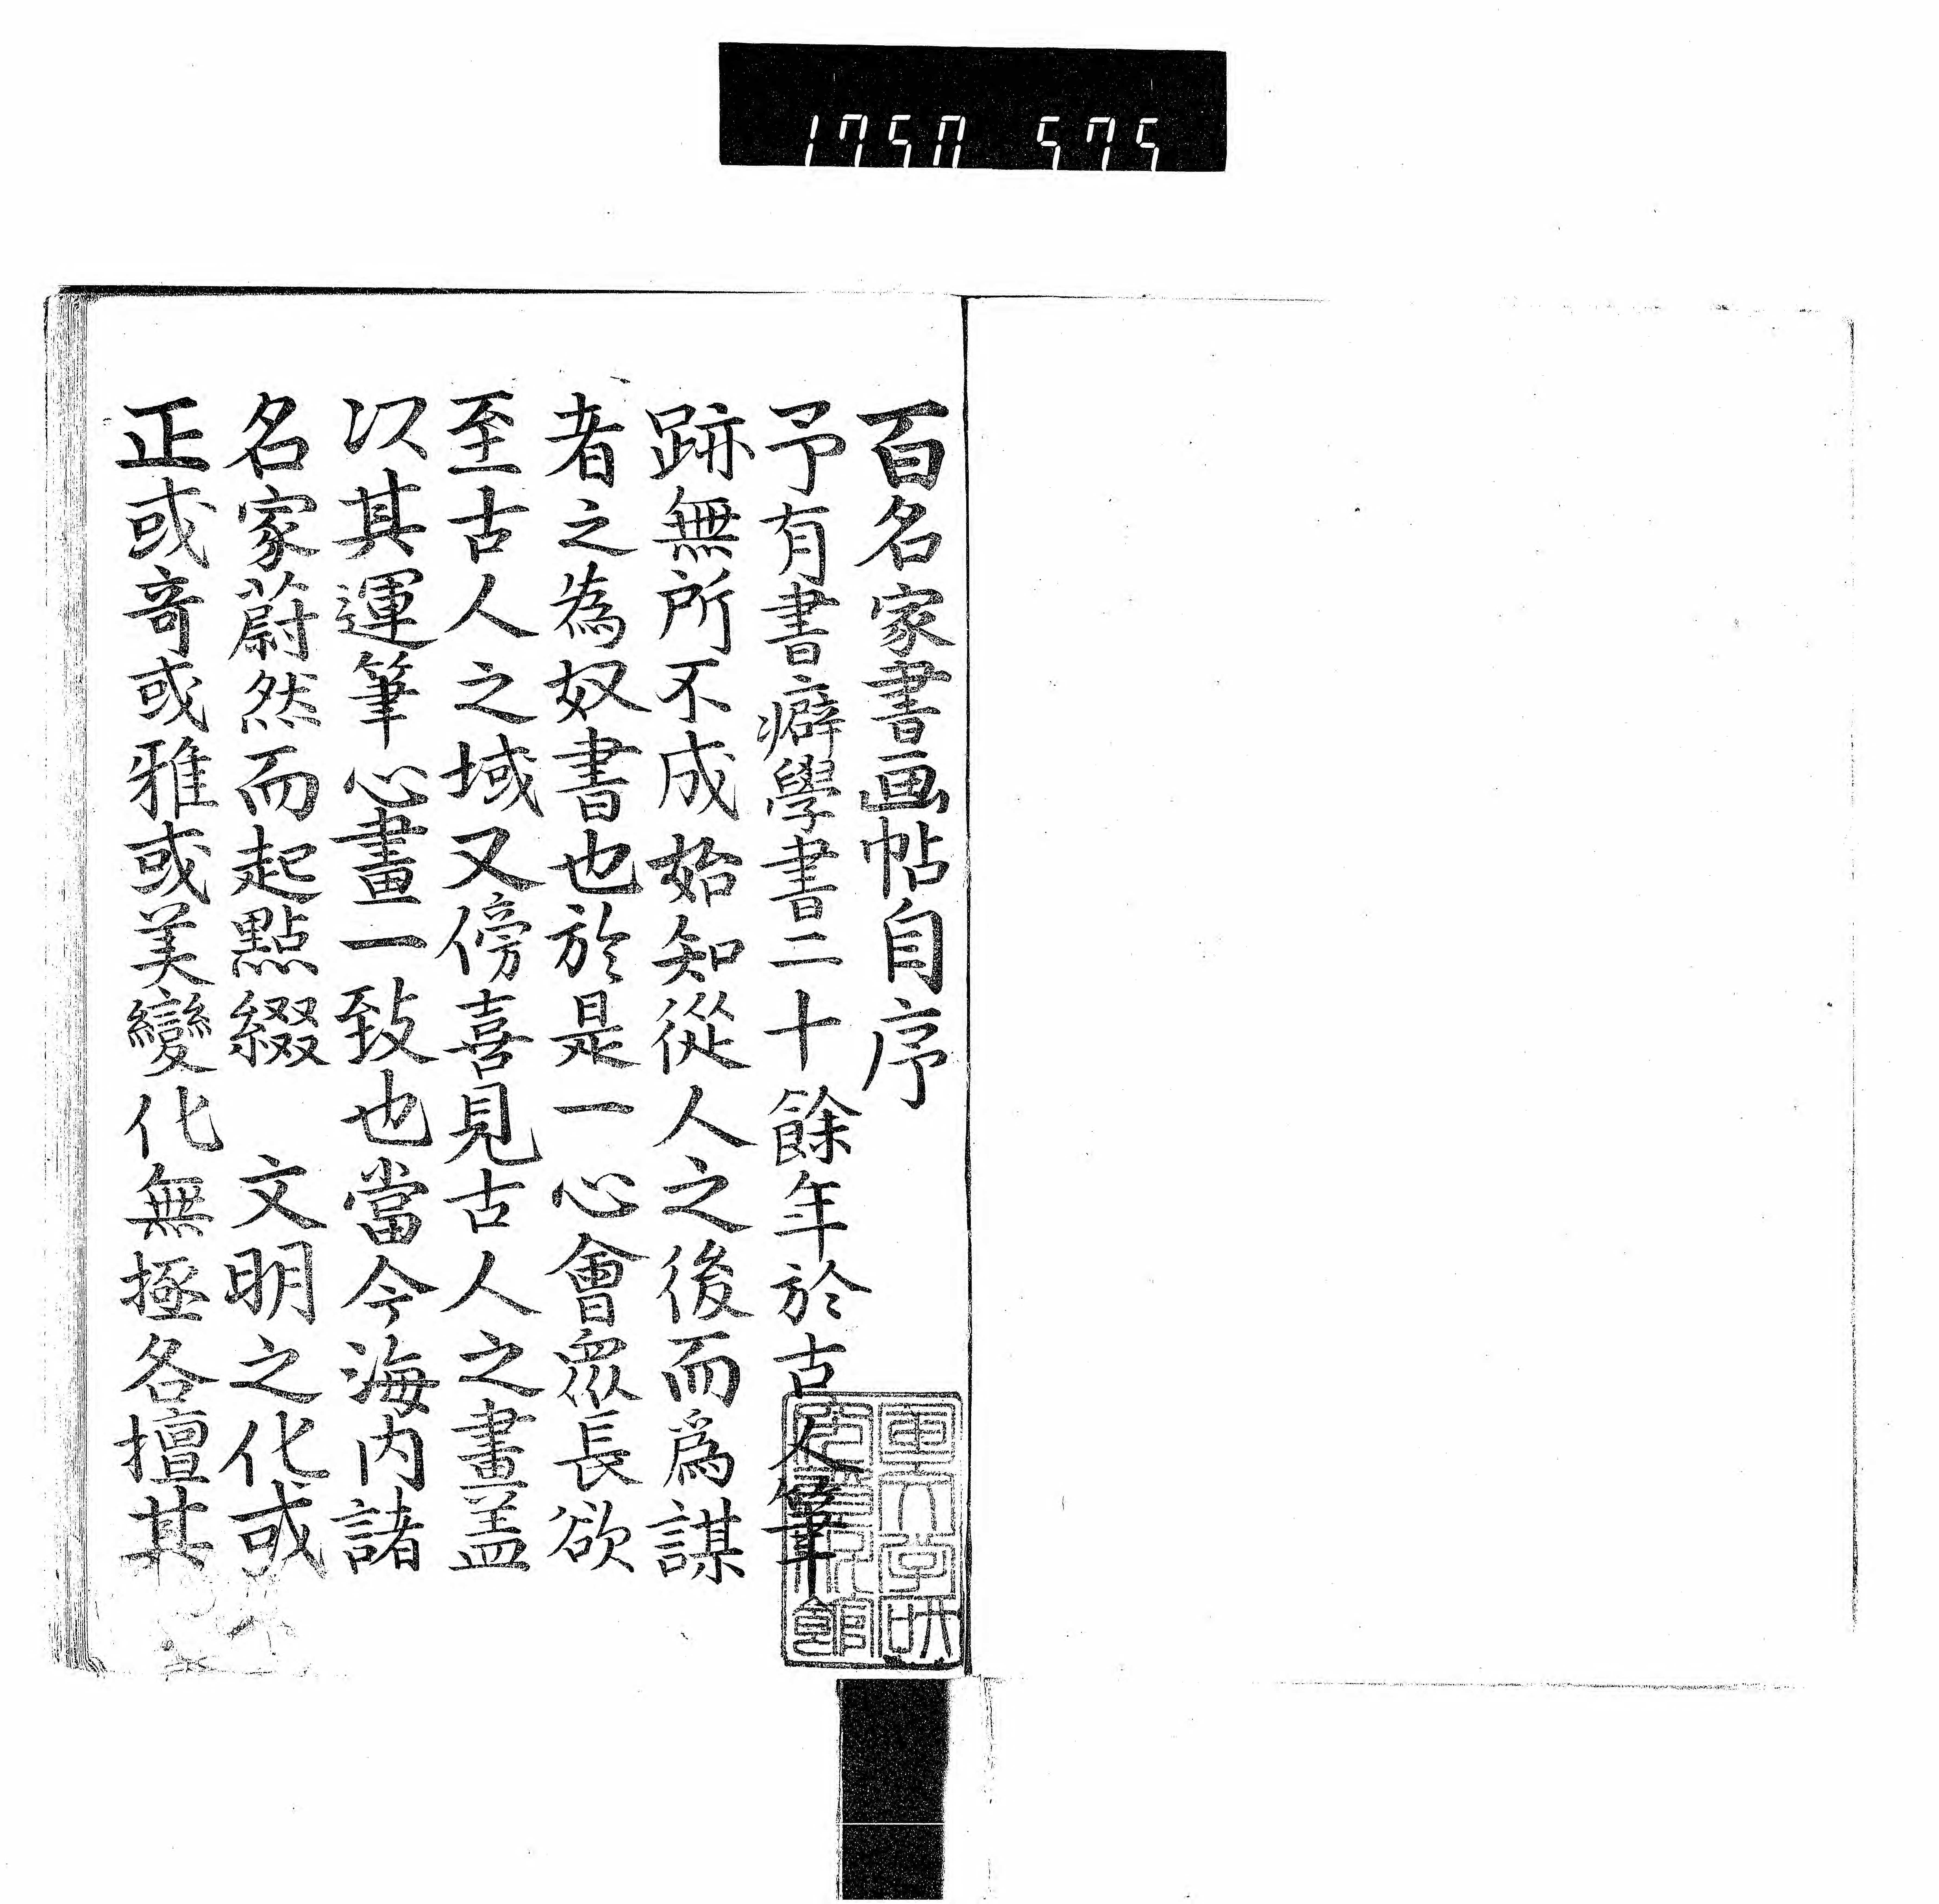 1750 575
百名家書画帖自序
予有書癖學書二十餘年於古人筆
跡無所不成始知從人之後而爲謀
者之為奴書也於是一心會眾長欲
至古人之域又傍喜見古人之畫盖
以其運筆心畫一致也當今海内諸
名家蔚然而起點綴 文明之化或
正或竒或雅或美變化無極各擅其